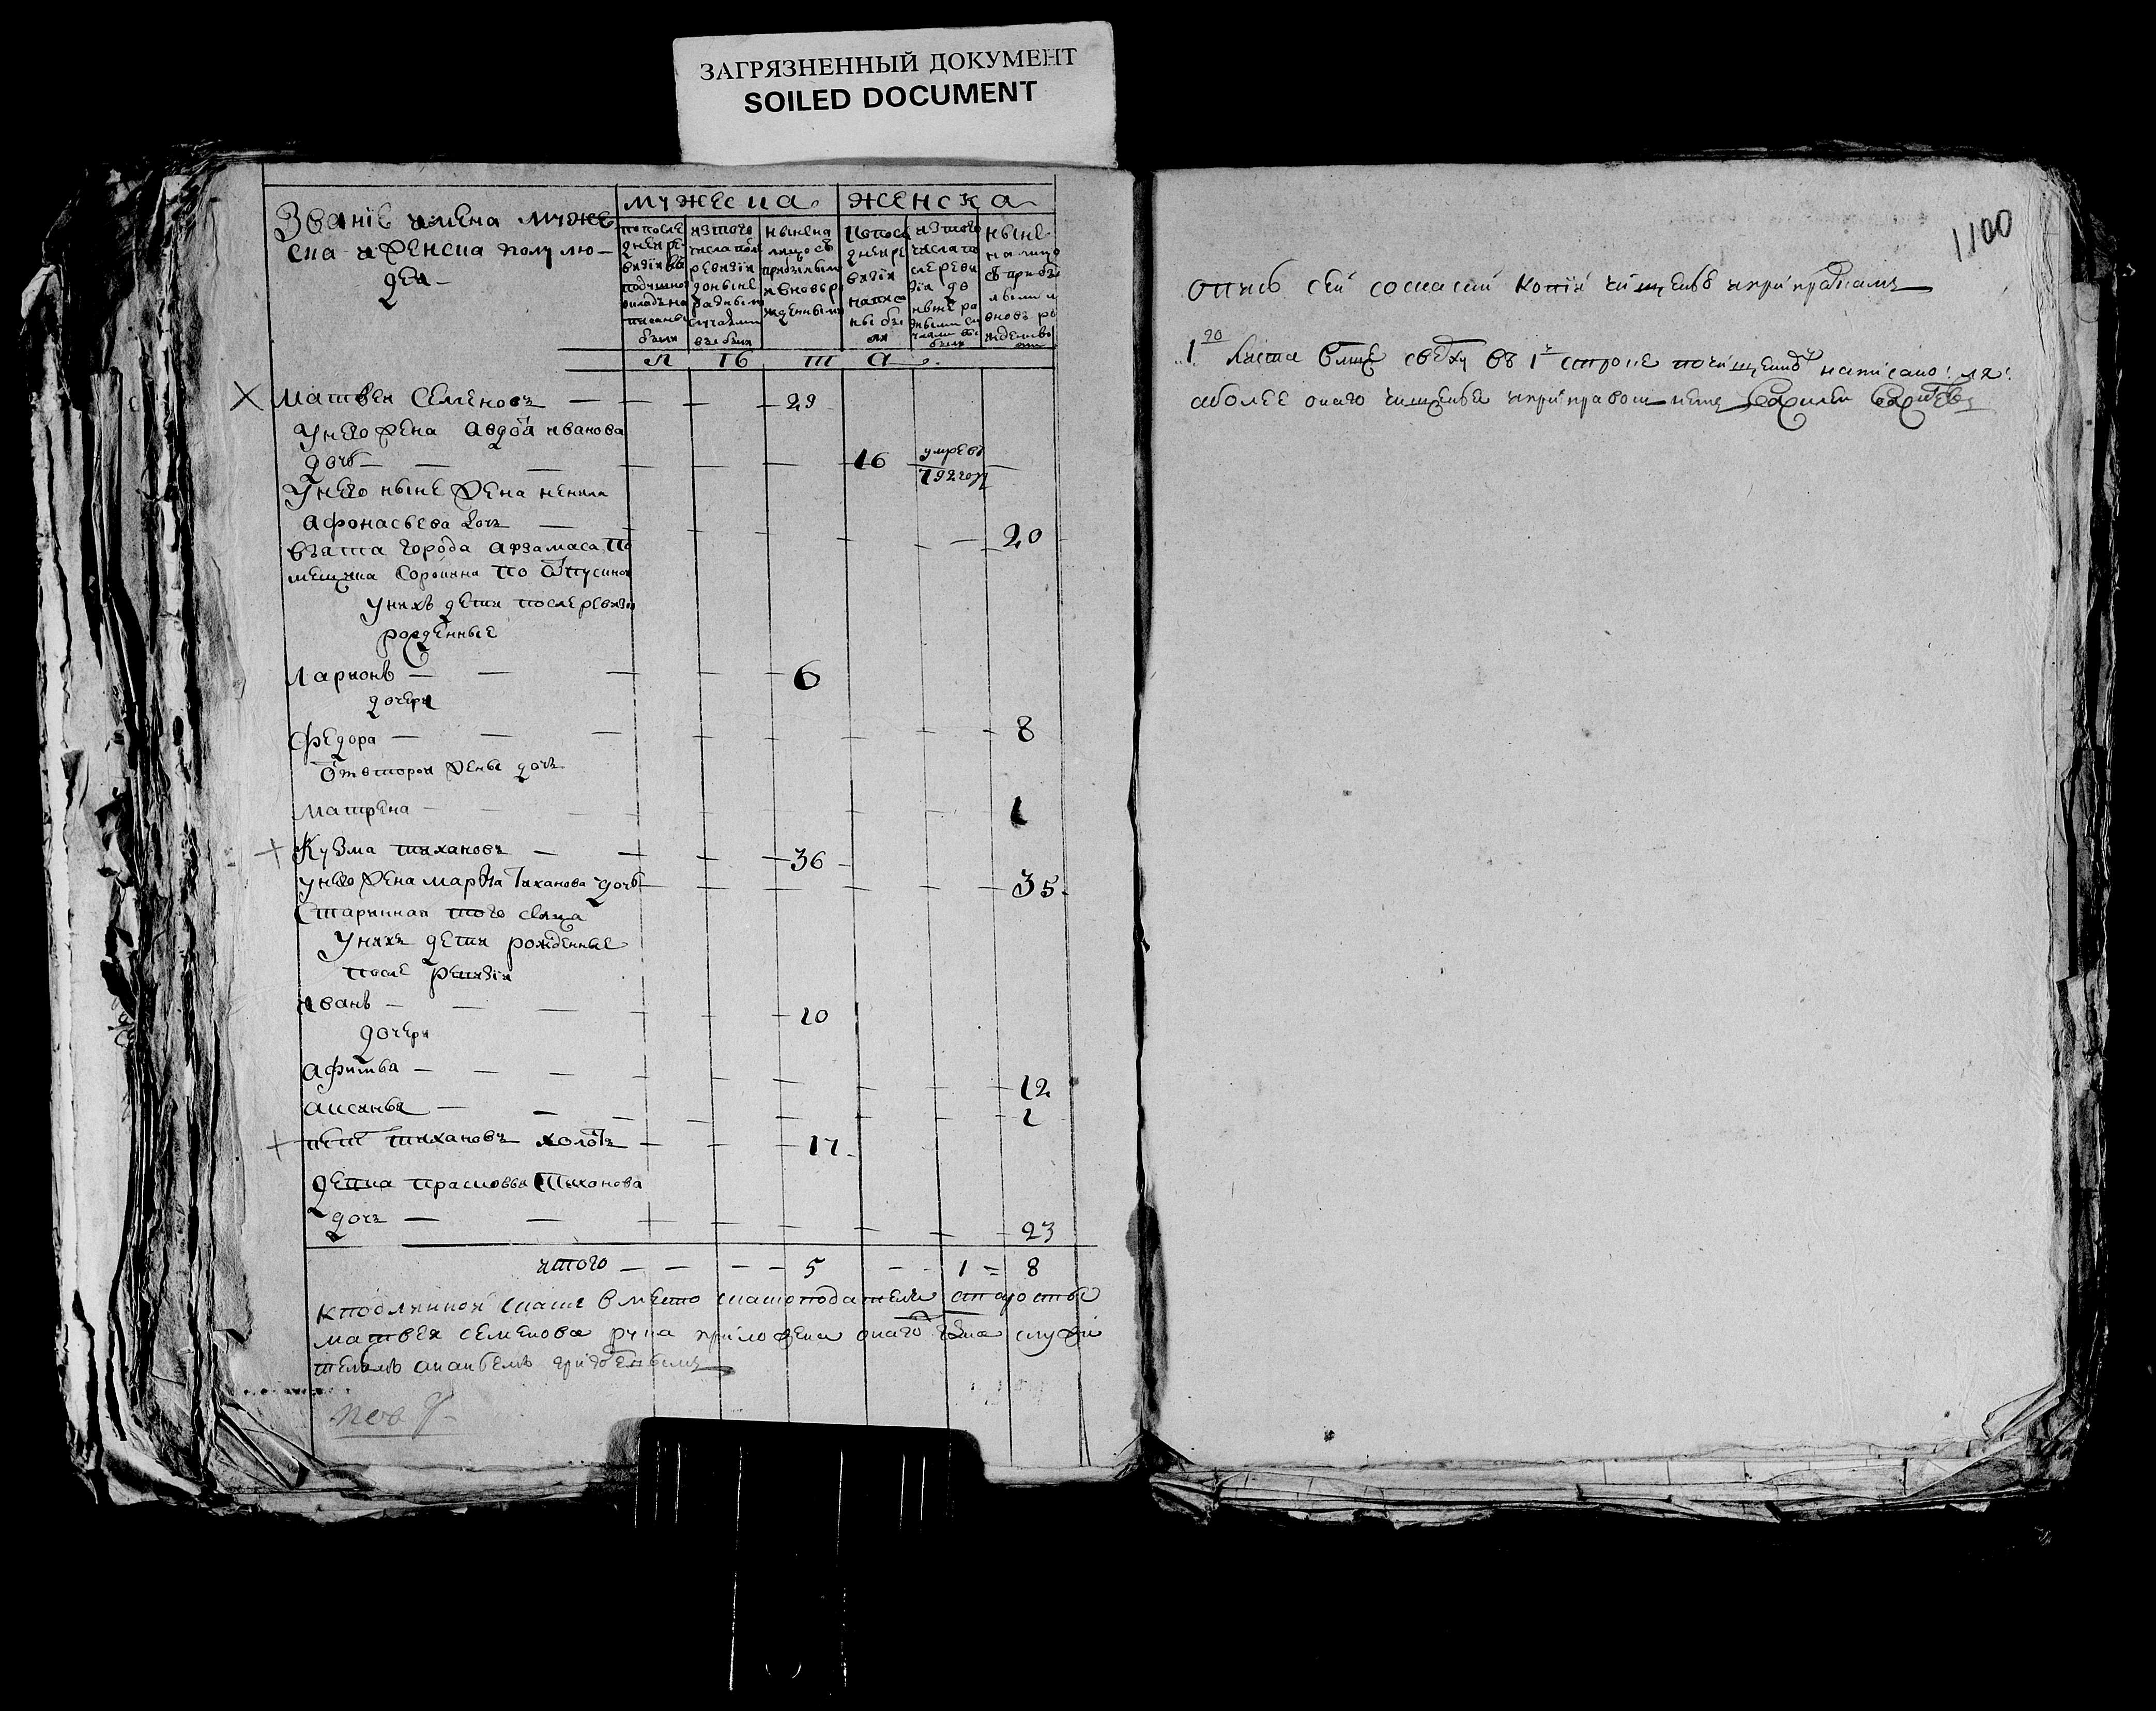 ЗАГРЯЗНЕННЫЙ ДОКУМЕНТ
SOILED DOCUMENT
Званіе имена муже
ска и женска полу лю-
деи-
мужеска
женска
по после
дней ре
визіи въ
подушно
окладъ на
писаны
были
изтого
числа посл
ревизіи
доныне
разными
случаями
выбыли
ныне на
лицо съ
прибылыми
и вновь ро
жденными
по посл
дней ре
визіи
написа
ны бы
ли
изтого
числа по
сле реви
зіи до
ныне ра
зными слу
чаями вы
были
ныне
на лицо
съ прибы
лыми и
вновь ро
жденны
ми
л т б т а
матвеи семеновъ 29
унево жена авдотья иванова
дочь 16 умре въ
792 году
унево ныне жена ненила
афонасьева дочь 20
взята города арзамаса по
мещика сорокина по отпускнои
унихъ дети послеревизіи
рожденные
Ларионъ 6
дочери
федора 8
от второи жены дочь
матрена 1
Кузма тихановъ 36
унево жена марфа Тиханова дочь 35
старинная того села
Унихъ дети рожденные
после ревизіи
иванъ 10
дочери
афимья 12
аксинья 1
петръ тихановъ холостъ 17
девка прасковья Тиханова
дочь 23
итого 5 1 = 8
кподлиннои скаске вместо скаскоподателя старосты
матвея семенова рука приложена онаго села служи
телемъ
1100
опись сеи соскаски копіи
1го листа вниз сверху въ 1 строке по чищенно написано: ля:
аболее онаго чищенья и приправок нет